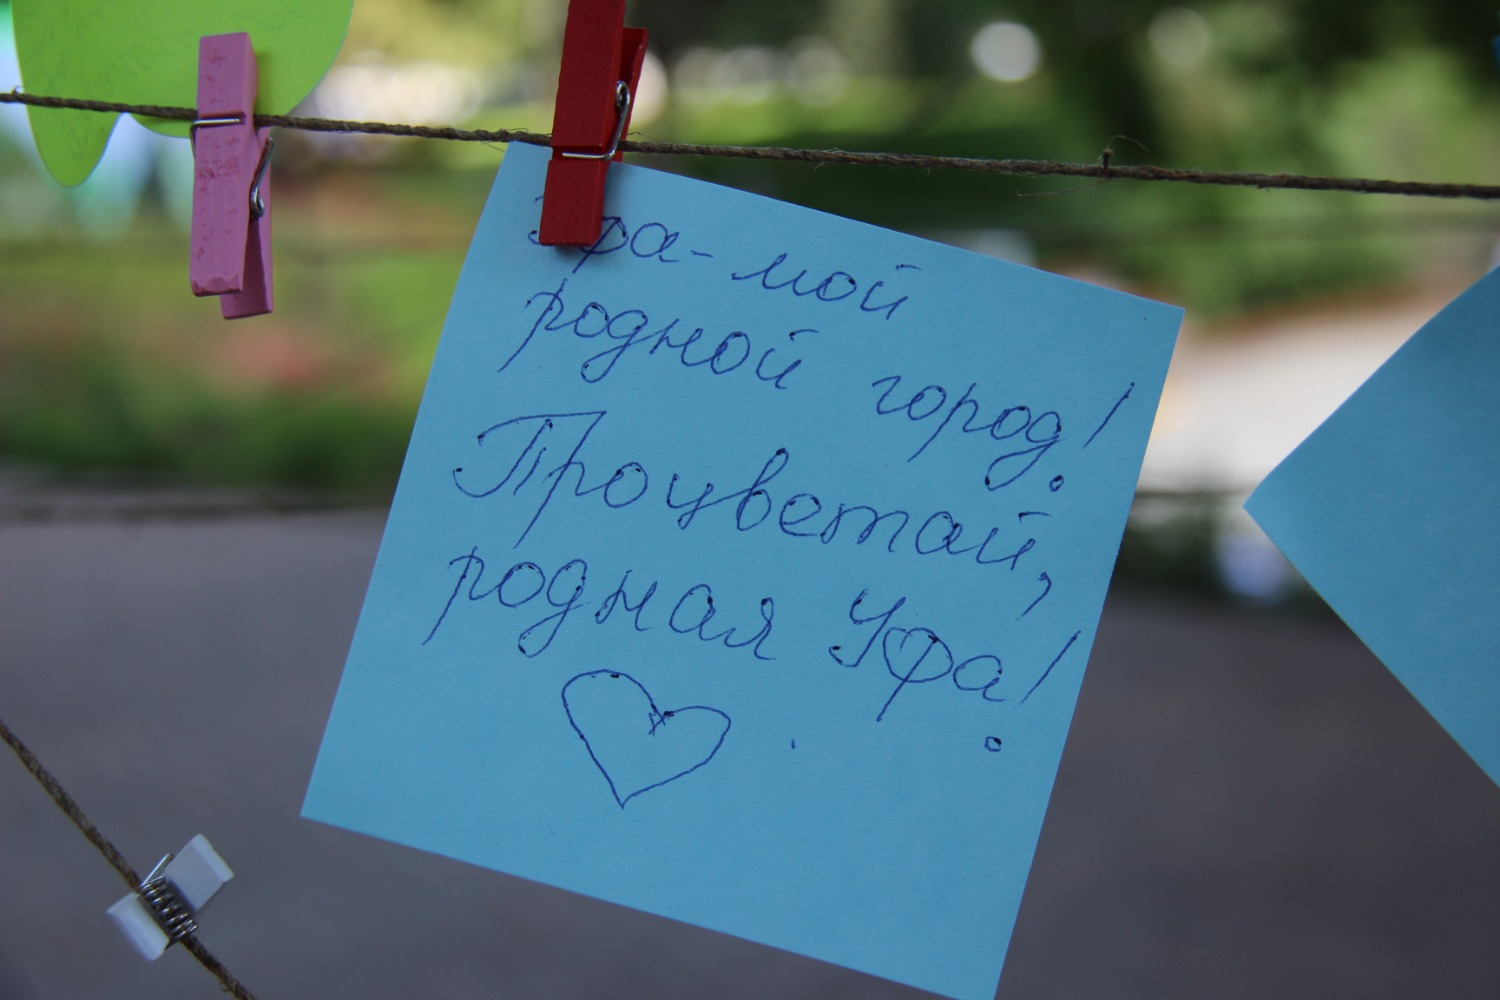 Уфа - мой
родной город!
Процветай,
родная Уфа!